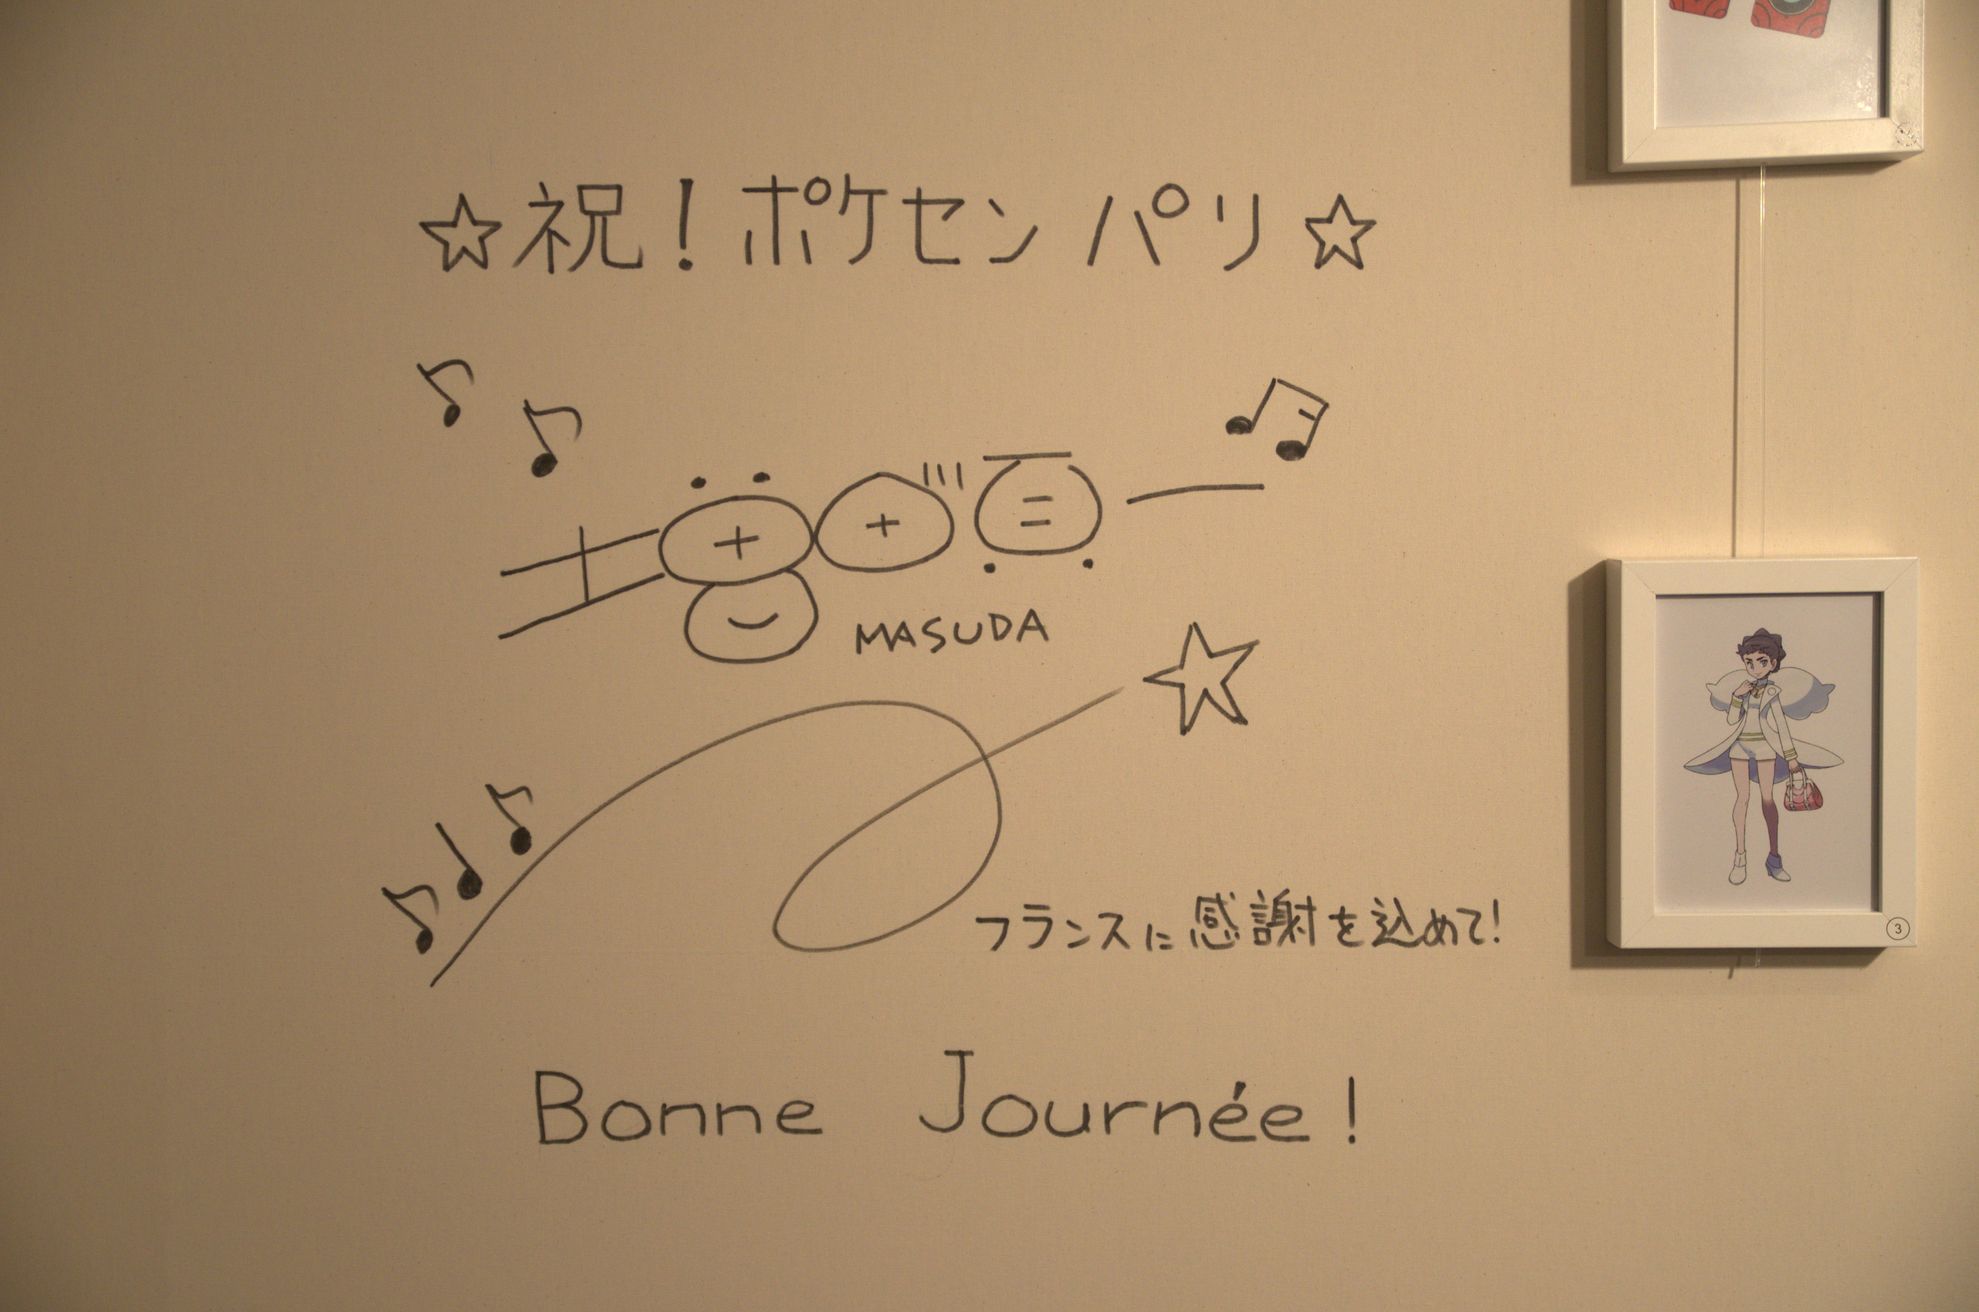 ☆祝！ポケセン パリ☆
MASUDA
フランスに感謝を込めて！
Bonne Journée !
3